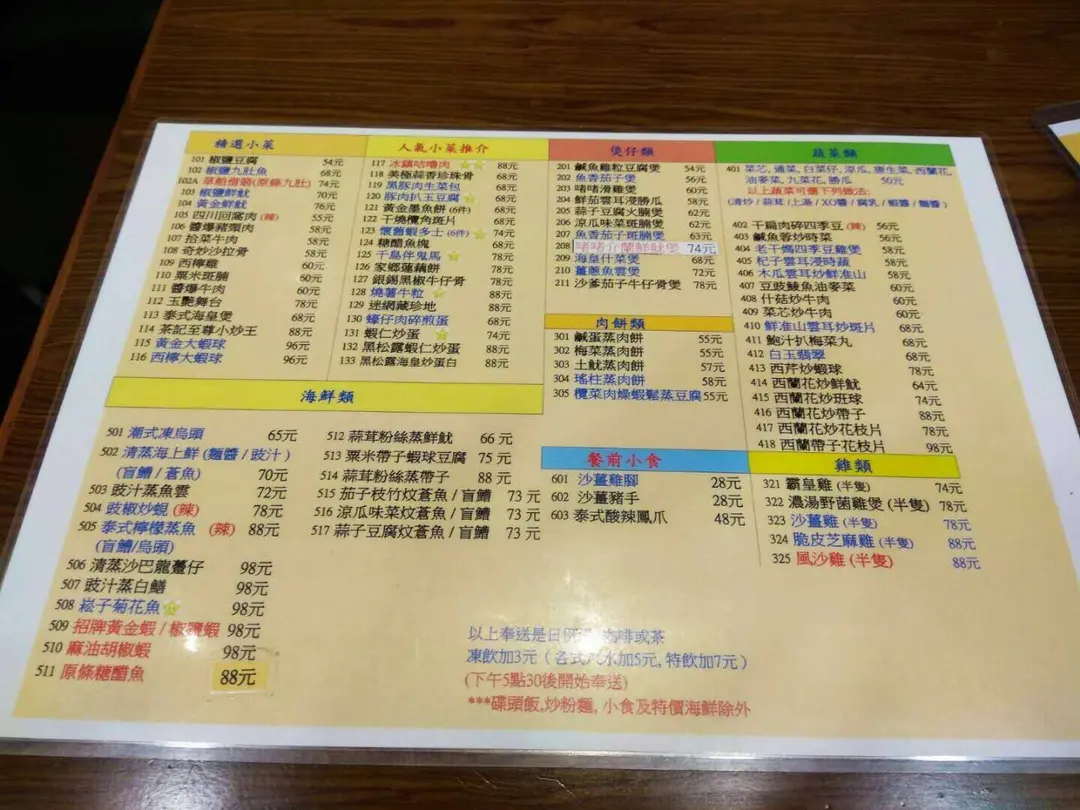 精選小菜
101 椒鹽豆腐 54元
102 椒鹽九肚魚 68元
102A 草船借箭(原條九肚) 74元
103 椒鹽鮮魷 70元
104 黃金鮮魷 76元
105 四川回窩肉 (辣) 55元
106 醬爆豬頸肉 58元
107 拾菜牛肉 58元
108 奇妙沙拉骨 59元
109 西檸雞 60元
110 粟米斑腩 60元
111 醬爆牛肉 60元
112 玉艷舞台 78元
113 泰式海皇煲 68元
114 茶記至尊小炒王 88元
115 黃金大蝦球 96元
116 西檸大蝦球 96元
人氣小菜推介
117 冰鎮咕嚕肉 88元
118 美極蒜香珍珠骨 68元
119 黑豚肉生菜包 68元
120 豚肉扒玉豆腐 68元
121 黃金墨魚餅 (6件) 68元
122 干燒欖角斑片 68元
123 懷舊蝦多士 (6件) 74元
124 糖醋魚塊 68元
125 千島伴鬼馬 78元
126 家鄉蓮藕餅 78元
127 銀錫黑椒牛仔骨 78元
128 燒薯牛粒 88元
129 迷網藏珍地 88元
130 蠔仔肉碎煎蛋 68元
131 蝦仁炒蛋 74元
132 黑松露蝦仁炒蛋 88元
133 黑松露海皇炒蛋白 88元
煲仔類
201 鹹魚雞粒豆腐煲 54元
202 魚香茄子煲 56元
203 啫啫滑雞煲 60元
204 鮮茄雲耳浸勝瓜 58元
205 蒜子豆腐火腩煲 62元
206 涼瓜味菜斑腩煲 62元
207 魚香茄子斑腩煲 63元
208 啫啫介蘭鮮魷煲 74元
209 海皇什菜煲 58元
210 薑蔥魚雲煲 72元
211 沙爹茄子牛仔骨煲 78元
肉餅類
301 鹹蛋蒸肉餅 55元
302 梅菜蒸肉餅 55元
303 土魷蒸肉餅 57元
304 瑤柱蒸肉餅 58元
305 欖菜肉燥蝦鬆蒸豆腐 55元
蔬菜類
401 菜芯, 通菜, 白菜仔, 涼瓜, 唐生菜, 西蘭花,
油麥菜, 九菜花, 勝瓜 50元
以上蔬菜可選下列做法:
(清炒 / 蒜茸 / 上湯 / XO醬 / 腐乳 / 蝦醬 / 麵醬 )
402 干扁肉碎四季豆 (辣) 56元
403 鹹魚蓉炒時菜 56元
404 老干媽四季豆雞煲 58元
405 杞子雲耳浸時蔬 58元
406 木瓜雲耳炒鮮淮山 58元
407 豆豉鯪魚油麥菜 60元
408 什菇炒牛肉 60元
409 菜芯炒牛肉 60元
410 鮮淮山雲耳炒斑片 68元
411 鮑汁扒梅菜丸 68元
412 白玉翡翠 68元
413 西芹炒蝦球 78元
414 西蘭花炒鮮魷 64元
415 西蘭花炒班球 74元
416 西蘭花炒帶子 88元
417 西蘭花炒花枝片 78元
418 西蘭帶子花枝片 98元
海鮮類
501 潮式凍烏頭 65元
502 清蒸海上鮮 (麵醬 / 豉汁 )
(盲鰽 / 倉魚) 70元
503 豉汁蒸魚雲 72元
504 豉椒炒蜆 (辣) 78元
505 泰式檸檬蒸魚 (辣) 88元
(盲鰽/烏頭)
506 清蒸沙巴龍躉仔 98元
507 豉汁蒸白鱔 98元
508 崧子菊花魚 98元
509 招牌黃金蝦 / 椒鹽蝦 98元
510 麻油胡椒蝦 98元
511 原條糖醋魚 88元
512 蒜茸粉絲蒸鮮魷 66 元
513 粟米帶子蝦球豆腐 75 元
514 蒜茸粉絲蒸帶子 88 元
515 茄子枝竹炆蒼魚 / 盲鰽 73 元
516 涼瓜味菜炆蒼魚 / 盲鰽 73 元
517 蒜子豆腐炆蒼魚 / 盲鰽 73 元
餐前小食
601 沙薑雞腳 28元
602 沙薑豬手 28元
603 泰式酸辣鳳爪 48元
雞類
321 霸皇雞 (半隻) 74元
322 濃湯野菌雞煲 (半隻) 78元
323 沙薑雞 (半隻) 78元
324 脆皮芝麻雞 (半隻) 88元
325 風沙雞 (半隻) 88元
以上奉送是日例湯 咖啡或茶
凍飲加3元 ( 各式汽水加5元, 特飲加7元 )
(下午5點30後開始奉送)
***碟頭飯,炒粉麵, 小食及特價海鮮除外